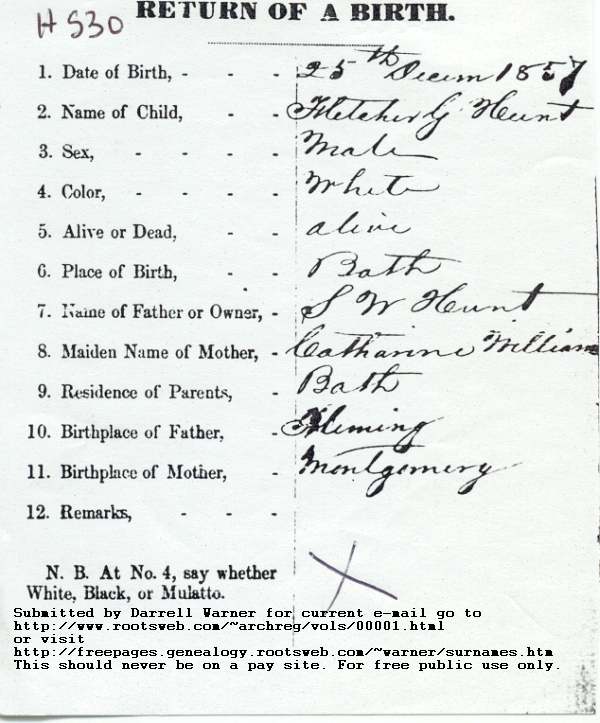 H 530
RETURN OF A BIRTH.
1. Date of Birth, - - - 25th Decem 1857
2. Name of Child, - - Fletcher G Hunt
3. Sex, - - - - Male
4. Color, - - - - White
5. Alive or Dead, - - alive
6. Place of Birth, - - Bath
7. Name of Father or Owner, - S W Hunt
8. Maiden Name of Mother, - Catharine William
9. Residence of Parents, - Bath
10. Birthplace of Father, - Fleming
11. Birthplace of Mother, - Montgomery
12. Remarks, - - -
N. B. At No. 4, say whether
White, Black, or Mulatto.
Submitted by Darrell Warner for current e-mail go to
http://www.rootsweb.com/~archreg/vols/00001.html
or visit
http://freepages.genealogy.rootsweb.com/~warner/surnames.htm
This should never be on a pay site. For free public use only.